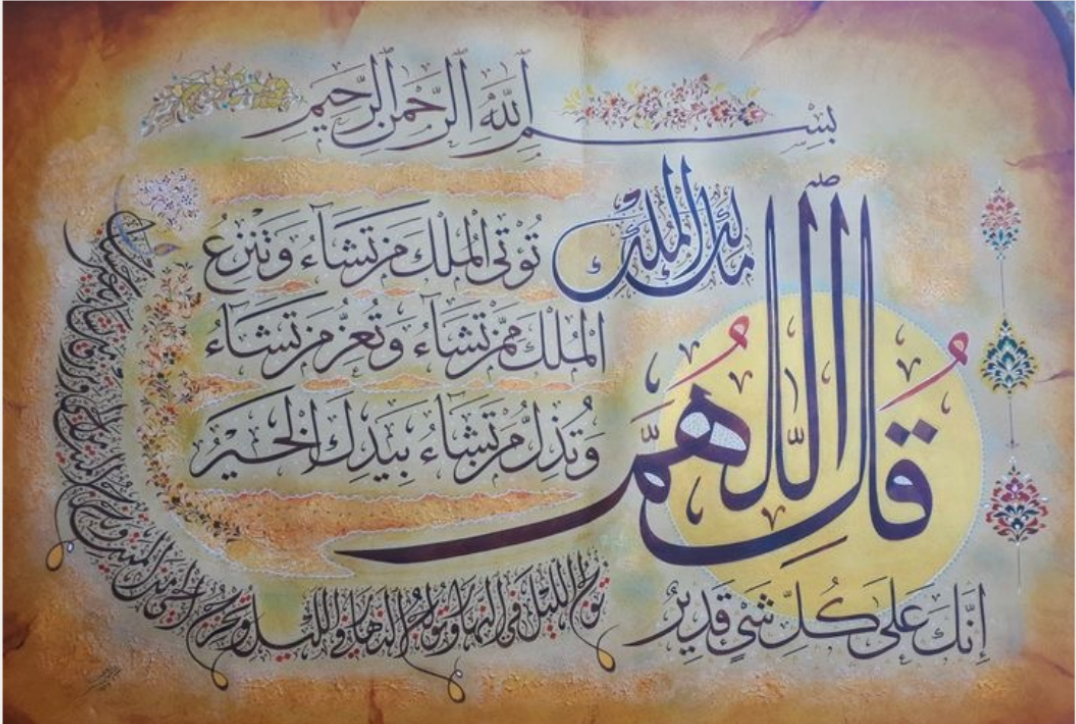 بِسْمِ ٱللَّهِ ٱلرَّحْمَٰنِ ٱلرَّحِيمِ
قُلِ اللَّهُمَّ
مَالِكَ الْمُلْكِ
تُؤْتِي الْمُلْكَ مَنْ تَشَاءُ وَتَنْزِعُ
الْمُلْكَ مِمَّنْ تَشَاءُ وَتُعِزُّ مَنْ تَشَاءُ
وَتُذِلُّ مَنْ تَشَاءُ بِيَدِكَ الْخَيْرُ
إِنَّكَ عَلَىٰ كُلِّ شَيْءٍ قَدِيرٌ
تولج الليل في النهار وتولج النهار في الليل وتخرج الحي من الميت وتخرج الميت